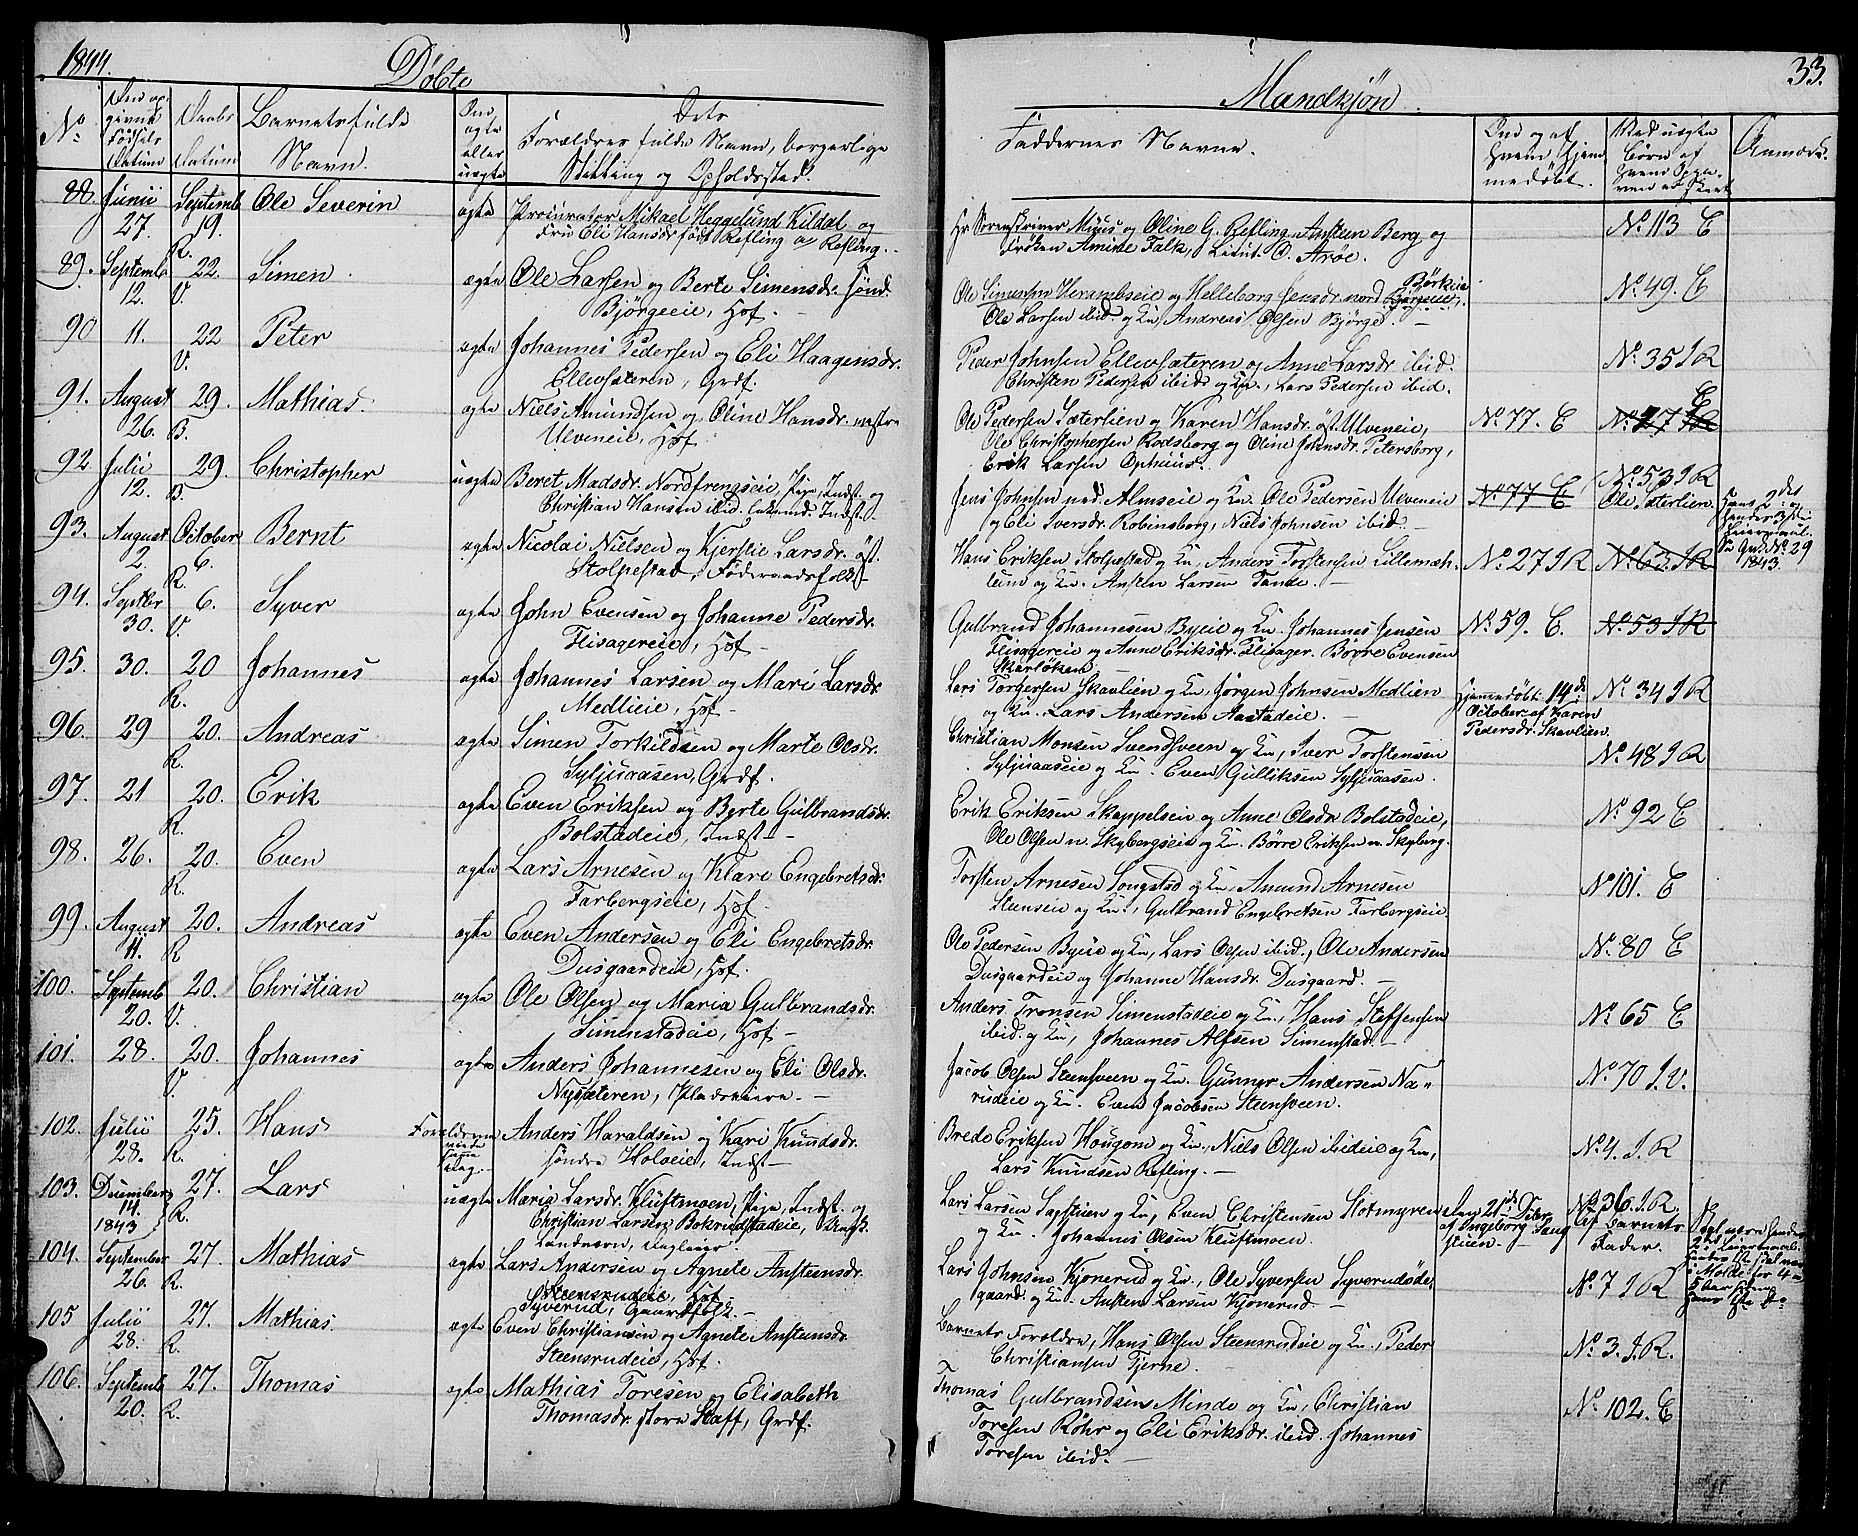 1844.
Döbte
Mandkjøn.
33.
No
Den op-
givne
Födsels
Datum
Daabs
Datum
Barnets fulde
Navn.
Om
ægte
eller
uægte
Dets
Forældres fulde Navn, borgerlige
Stilling og Opholdssted.
Faddernes Navne.
Om og af
hvem hjem-
medøbt.
Ved uægte
börn af
hvem Opga-
ven er skeet
Anmærk.
88 Junii Septemb Ole Severin ægte Procurator Mikael Heggelund Kildal og
27. 19. Fru Eli Hansdr født Refling og Refling.
R.
Hr Sorenskriver Muus og Oline G. Refling, Ansteen Berg og
Frøken Amine Falk, Lieut. O. Arøe.
No 113 E
89. Septemb 22. Simen ægte Ole Larsen og Berte Simensdr. sönd.
12. V. Bjørgeeie, Hof.
Ole Simensen Herambseie og Helleborg Jensdr. nord Börkeie
Ole Larsen ibid. og Kn, Andreas Olsen Bjørge.
No 49. E
90 11. 22 Peter ægte Johannes Pedersen og Eli Haagensdr.
V. Ellevsæteren, Grdf.
Peder Johnsen Ellevsæteren og Anne Larsdr ibid.
Christen Pedersen ibid og Kn., Lars Pedersen ibid.
No 35 J R
91. August 29. Mathias. ægte Niels Amundsen og Oline Hansdr. vestre
26. B. Ulveneie, Hof
Ole Pedersen Sæterlien og Karen Hansdr. öst. Ulveneie,
Ole Christophersen Rodsborg og Oline Johnsdr. Petersborg,
Erik Larsen Ophuus.
No 77. E
E
92 Julii 29. Christopher uægte Beret Madsdr. Nordfrengseie, Pige, Indst. og
12. B. Christian Hansen ibid. Indst.
Jens Johnsen nord. Almseie og Kn. Ole Pedersen Ulveneie
og Eli Iversdr. Robinsborg, Niels Johnsen ibid.
No 77 E
No 53 J R
Ole Sæterlien.
Hans 2det og
hendes 3die
Leiermaal.
No 29
1843
93. August October Bernt ægte Nicolai Nielsen og Kjerstie Larsdr. öst.
2. 6. Stolpestad, Föderaadsfolk
R.
Hans Eriksen Stolpestad og Kn, Anders Torstensen Lillemæh-
lum og Kn. Ansten Larsen Tande.
No 27 J R
No 63. J R
94. Septbr 6. Syver ægte John Evensen og Johanne Pedersdr.
30. V. Flisagereie, Hof
Gulbrand Johannesen Byeie og Kn. Johannes Jensen
Flisagereie og Anne Eriksdr. Flisager. Børre Evensen
Skarlöken
No 59. E.
No 53 J R
95. 30. 20 Johannes ægte Johannes Larsen og Mari Larsdr.
R. Medlieie, Hof
Lars Torgersen Skavlien og Kn, Jørgen Johnsen Medlien
og Kn. Lars Andersen Aastadeie.
Hjemmedöbt 14de
October af Karen
Pedersdr. Skavlien.
No 34 J R
96. 29 20. Andreas ægte Simen Torkildsen og Marte Olsdr.
R. Syljuaasen, Grdf.
Christian Monsen Svendsveen og Kn, Iver Torstensen
Syljuaaseie og Kn. Even Gulliksen Syljuaasen.
No 48 J R
97. 21 20. Erik ægte Even Eriksen og Berte Gulbrandsdr.
R. Bolstadeie, Indst
Erik Eriksen Skappelseie og Anne Olsdr Bolstadeie,
Ole Olsen n. Skybergseie og Kn. Børre Eriksen n. Skyberg.
No 92 E
98. 26. 20. Even ægte Lars Arnesen og Klare Engebretsdr.
R. Farbergseie, Hof.
Torsten Arnesen Songstad og Kn, Amund Arnesen
Steenseie og Kn., Gulbrand Engebretsen Farbergseie
No 101. E
99. August 20. Andreas ægte Even Andersen og Eli Engebretsdr.
11. R Dusgaardeie, Hof.
Ole Pedersen Byeie og Kn, Lars Olsen ibid., Ole Andersen
Dusgaardeie og Johanne Hansdr. Dusgaard.
No 80 E
100. Septemb 20. Christian ægte Ole Olsen og Maria Gulbrandsdr.
20. V. Simenstadeie, Hof
Anders Tronsen Simenstadeie og Kn, Hans Steffensen
ibid. og Kn, Johannes Alfsen Simenstad.
No 65 E
101. 28. 20. Johannes ægte Anders Johannesen og Eli Olsdr.
V. Nysæteren, Pladseiere.
Jacob Olsen Steensveen og Kn. Gunner Andersen Na-
rudeie og Kn. Even Jacobsen Steensveen.
No 70 J. V.
102. Julii 25. Hans Forældrene Anders Haraldsen og Kari Knudsdr.
28. R. viede samme Dag søndre Holveie, Indst
Brede Eriksen Hougom og Kn, Niels Olsen ibideie og Kn,
Lars Knudsen Refling.
No 4. J. R
103. December 27. Lars uægte Maria Larsdr. Kluftmoen, Pige, Indst. og
14. 1843 R. Christian Larsen Bakrudstadeie,
Landværn,
Lars Larsen Sagstuen og Kn, Even Christensen Slotmyren
og Kn. Johannes Olsen Kluftmoen.
den 21de Dcbr
af Ingeborg Sang-
stuen.
No 36. J. R.
Af Barnets
Fader.
104. September 27. Mathias ægte Lars Andersen og Agnete Anstensdr.
26. R. Steensrudeie, Hof
Syverud, Gaardfolk.
Lars Johnsen Kjonerud og Kn., Ole Syversen Syverudöde-
gaard og Kn. Ansten Larsen Kjonerud
No 7 J R
105 Julii 27. Mathias ægte Even Christiansen og Agnete Anstensdr.
28. R. Steensrudeie, Hof.
Barnets Forældre, Hans Olsen Steensrudeie og Kn., Peder
Christiansen Tjerne.
No 3. J. R.
106. Septemb 27. Thomas ægte Mathias Toresen og Elisabeth
20. R. Thomasdr. store Staff, Grdf.
Thomas Gulbrandsen Minde og Kn, Christian
Toresen Röhr og Eli Eriksdr. ibid. Johannes
Toresen ibid.
No 102. E